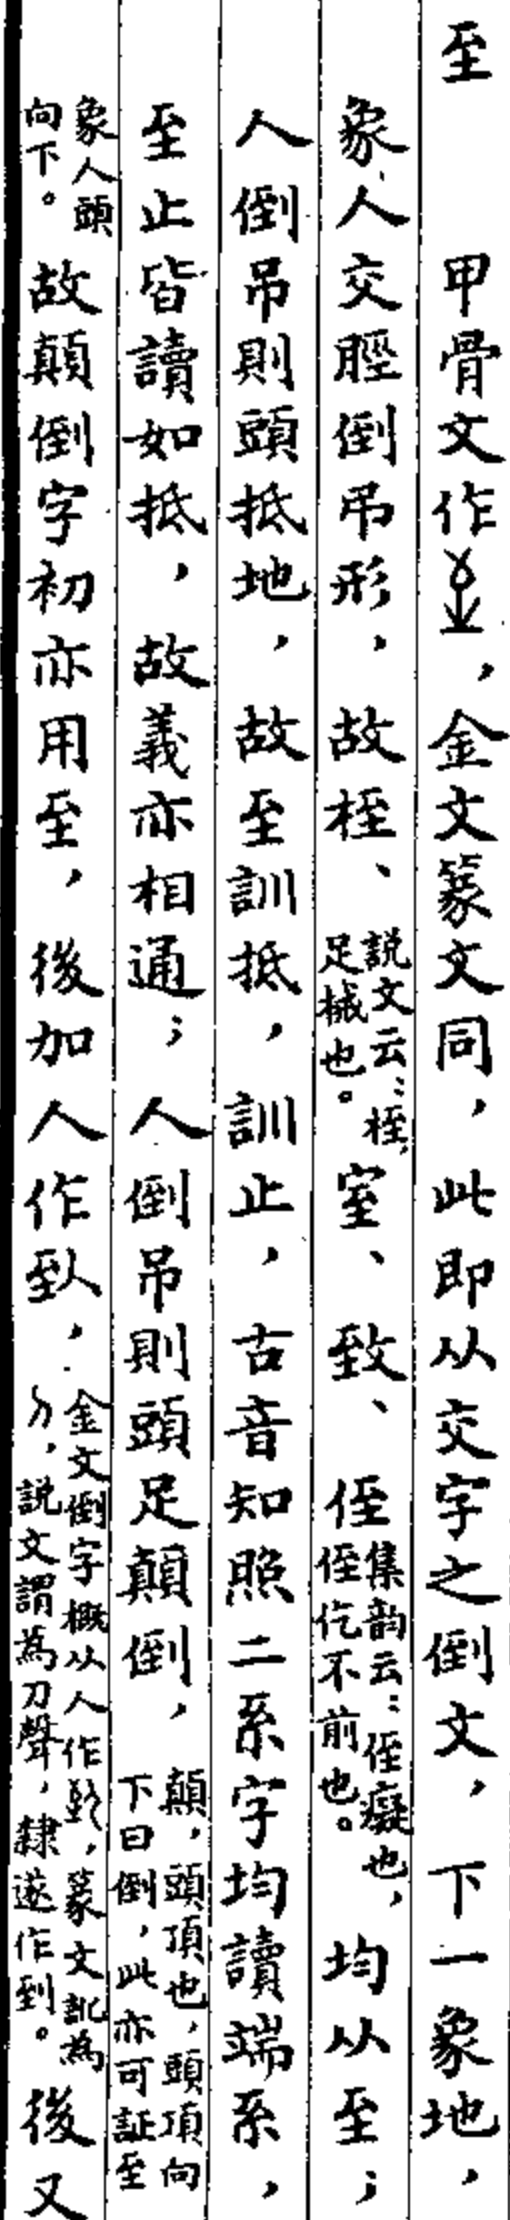 至　甲骨文作，金文篆文同，此即从交字之倒文，下一象地，
象人交脛倒吊形，故桎、説文云：桎，足械也。室、致、侄集韵云：侄癡也，侄仡不前也。均从至；
人倒吊則頭抵地，故至訓抵，訓止，古音知照二系字均讀端系，
至止皆讀如抵，故義亦相通；人倒吊則頭足顛倒，顛，頭頂也，頭頂向下曰倒，此亦可証至
象人頭向下。故顛倒字初亦用至，後加人作㲃，金文倒字概从人作，篆文訛為，説文謂為刀聲，隸遂作到。後又